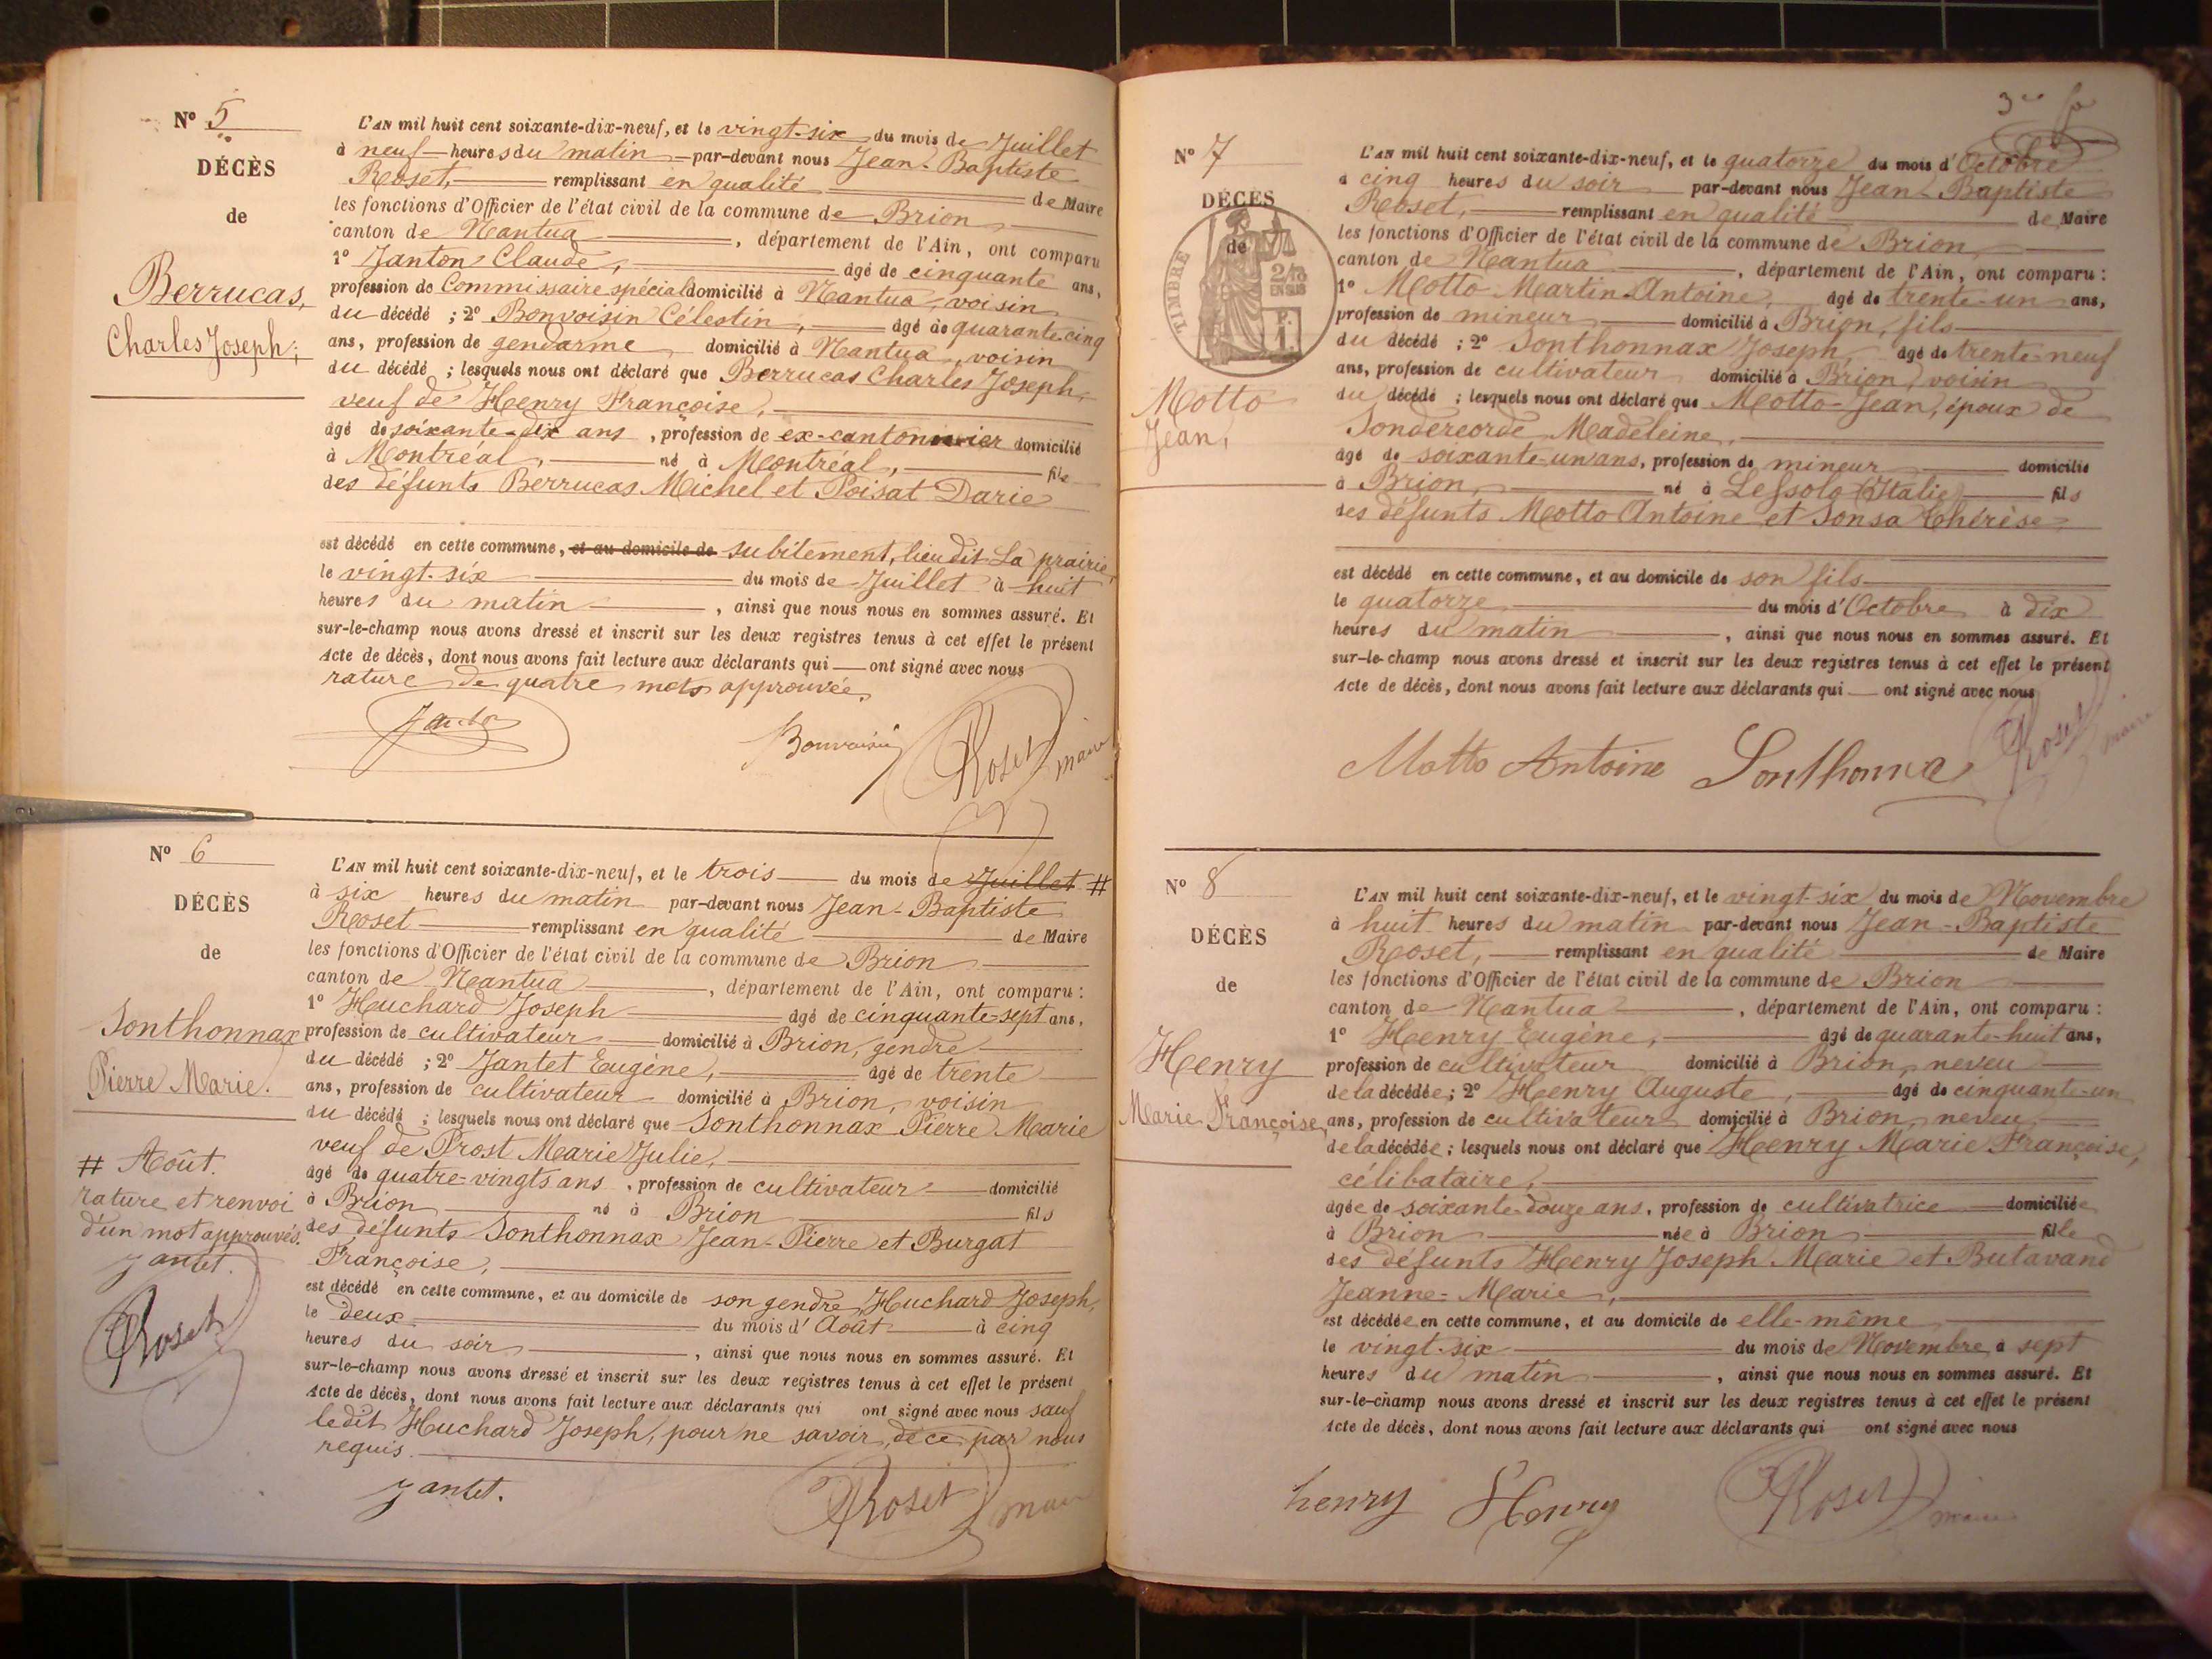 N° 5
DÉCÈS
de
Berrucas,
Charles Joseph;
L'AN mil huit cent soixante-dix-neuf, et le vingt-six du mois de Juillet
à neuf heures du matin par-devant nous Jean-Baptiste
Roset, remplissant en qualité de Maire
les fonctions d'Officier de l'état civil de la commune de Brion
canton de Nantua, département de l'Ain, ont comparu
1° Janton Claude, âgé de cinquante ans,
profession de Commissaire spécial domicilié à Nantua, voisin
du décédé ; 2° Bonvoisin Célestin, âgé de quarante-cinq
ans, profession de gendarme domicilié à Nantua, voisin
du décédé ; lesquels nous ont déclaré que Berrucas Charles Joseph,
veuf de Henry Françoise,
âgé de soixante-dix ans, profession de ex-cantonnier domicilié
à Montréal, né à Montréal, fils
des défunts Berrucas Michel et Poisat Darie
est décédé en cette commune, et au domicile de subitement, lieu dit La prairie,
le vingt-six du mois de Juillet à huit
heures du matin, ainsi que nous nous en sommes assuré. Et
sur-le-champ nous avons dressé et inscrit sur les deux registres tenus à cet effet le présent
Acte de décès, dont nous avons fait lecture aux déclarants qui ont signé avec nous
rature de quatre mots approuvée.
Bonvoisin Roset maire
N° 6
DÉCÈS
de
Sonthonnax
Pierre Marie.
# Août.
rature et renvoi
d'un mot approuvés.
Jantet.
Roset
L'AN mil huit cent soixante-dix-neuf, et le trois du mois de Juillet #
à six heures du matin par-devant nous Jean-Baptiste
Roset remplissant en qualité de Maire
les fonctions d'Officier de l'état civil de la commune de Brion
canton de Nantua, département de l'Ain, ont comparu :
1° Huchard Joseph âgé de cinquante-sept ans,
profession de cultivateur domicilié à Brion, gendre
du décédé ; 2° Jantet Eugène, âgé de trente
ans, profession de cultivateur domicilié à Brion, voisin
du décédé ; lesquels nous ont déclaré que Sonthonnax Pierre Marie
veuf de Prost Marie Julie,
âgé de quatre-vingts ans, profession de cultivateur domicilié
à Brion né à Brion fils
des défunts Sonthonnax Jean-Pierre et Burgat
Françoise,
est décédé en cette commune, et au domicile de son gendre, Huchard Joseph,
le deux du mois d'Août à cinq
heures du soir, ainsi que nous nous en sommes assuré. Et
sur-le-champ nous avons dressé et inscrit sur les deux registres tenus à cet effet le présent
Acte de décès, dont nous avons fait lecture aux déclarants qui ont signé avec nous sauf
ledit Huchard Joseph, pour ne savoir, de ce par nous
requis.
Jantet. Roset maire
N° 7
DÉCÈS
de
TIMBRE
Motto
Jean,
L'AN mil huit cent soixante-dix-neuf, et le quatorze du mois d'Octobre
à cinq heures du soir par-devant nous Jean-Baptiste
Roset, remplissant en qualité de Maire
les fonctions d'Officier de l'état civil de la commune de Brion,
canton de Nantua, département de l'Ain, ont comparu :
1° Motto Martin-Antoine, âgé de trente-un ans,
profession de mineur domicilié à Brion, fils
du décédé ; 2° Sonthonnax Joseph, âgé de trente-neuf
ans, profession de cultivateur domicilié à Brion, voisin
du décédé ; lesquels nous ont déclaré que Motto Jean, époux de
Sondereorde Madeleine,
âgé de soixante-un ans, profession de mineur domicilié
à Brion, né à Lessolo (Italie) fils
des défunts Motto Antoine et Sonsa Thérèse
est décédé en cette commune, et au domicile de son fils
le quatorze du mois d'Octobre à dix
heures du matin, ainsi que nous nous en sommes assuré. Et
sur-le-champ nous avons dressé et inscrit sur les deux registres tenus à cet effet le présent
Acte de décès, dont nous avons fait lecture aux déclarants qui ont signé avec nous
Motto Antoine Roset maire
N° 8
DÉCÈS
de
Henry
Marie Françoise,
L'AN mil huit cent soixante-dix-neuf, et le vingt-six du mois de Novembre
à huit heures du matin par-devant nous Jean-Baptiste
Roset, remplissant en qualité de Maire
les fonctions d'Officier de l'état civil de la commune de Brion
canton de Nantua, département de l'Ain, ont comparu :
1° Henry Eugène, âgé de quarante-huit ans,
profession de cultivateur domicilié à Brion, neveu
de la décédée ; 2° Henry Auguste, âgé de cinquante-un
ans, profession de cultivateur domicilié à Brion, neveu
de la décédée ; lesquels nous ont déclaré que Henry Marie Françoise,
célibataire,
âgée de soixante-douze ans, profession de cultivatrice domiciliée
à Brion née à Brion fille
des défunts Henry Joseph Marie et Butavand
Jeanne-Marie,
est décédée en cette commune, et au domicile de elle-même
le vingt-six du mois de Novembre à sept
heures du matin, ainsi que nous nous en sommes assuré. Et
sur-le-champ nous avons dressé et inscrit sur les deux registres tenus à cet effet le présent
Acte de décès, dont nous avons fait lecture aux déclarants qui ont signé avec nous
henry Henry Roset maire